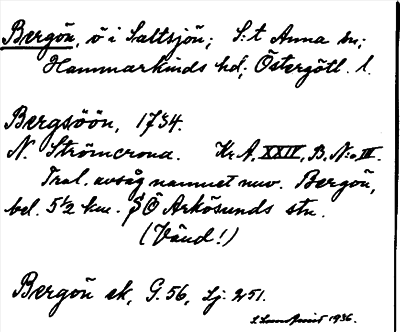 Bergön, ö i Saltsjön; S:t Anna sn;
Hammarkinds hd; Östergötl. l.
Bergsöön, 1734.
N. Strömcrona. Kr. A. XXIV, B, N:o III.
Trol. avsåg namnet nuv. Bergön,
bel. 5 1/2 km. S Ö Arkösunds stn.
(Vänd!)
Bergön ek, G. 56, Lj. 251.
1936.